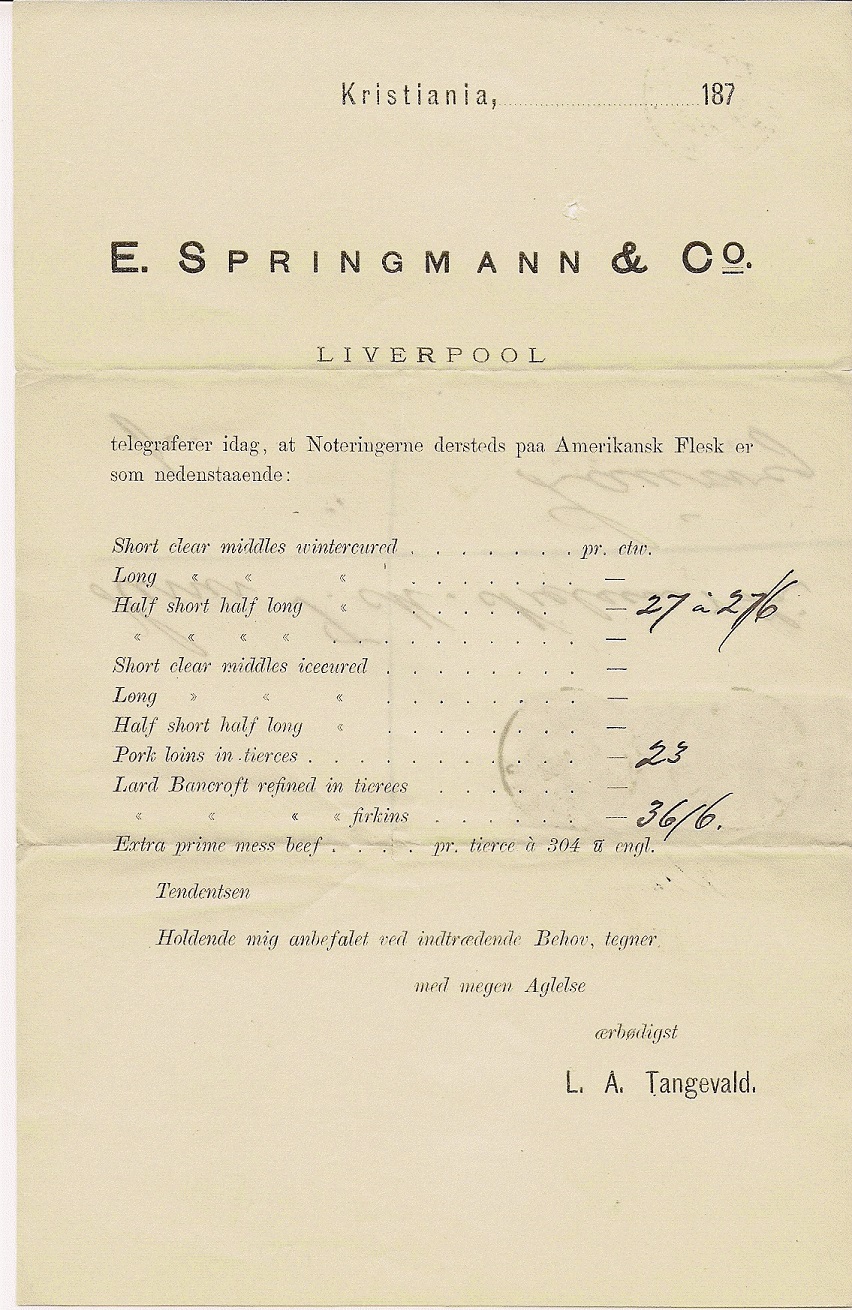 Kristiania, 187
E. SPRINGMANN & Co.
LIVERPOOL
telegraferer idag, at Noteringerne dersteds paa Amerikansk Flesk er
som nedenstaaende:
Short clear middles wintercured . . . . . . . pr. ctw.
Long « « « . . . . . . . —
Half short half long « . . . . . . . — 27 à 27/6
« « « « . . . . . . . . . —
Short clear middles icecured . . . . . . . —
Long » « « . . . . . . . —
Half short half long « . . . . . . . —
Pork loins in tierces . . . . . . . . . . — 23
Lard Bancroft refined in tierces . . . . . —
« « « « firkins . . . . . — 36/6.
Extra prime mess beef . . . . pr. tierce à 304 ℔ engl.
Tendentsen
Holdende mig anbefalet ved indtrædende Behov, tegner
med megen Aglelse
ærbødigst
L. A. Tangevald.